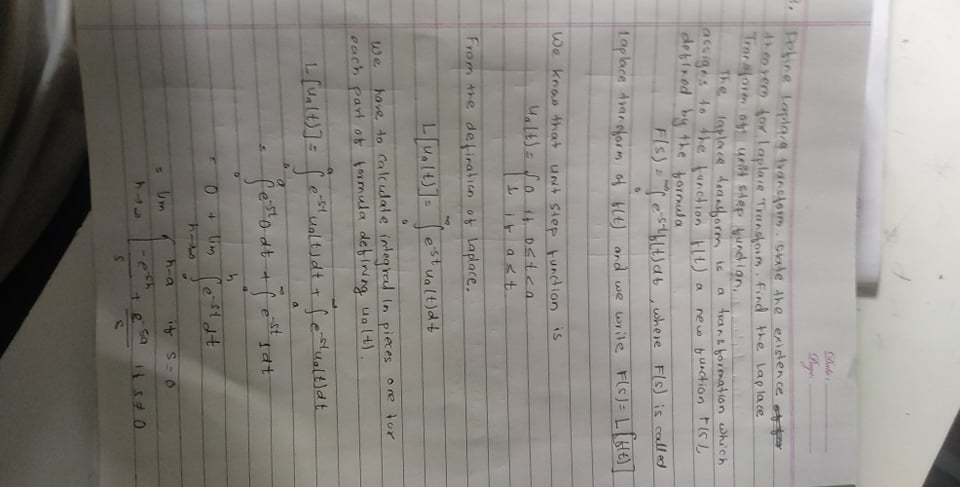 Date:
Page:
3. Define Laplace transform. State the existence
theorem for Laplace Transform. Find the Laplace
Transform of unit step function.
The laplace transform is a transformation which
assigns to the function f(t) a new function F(s),
defined by the formula
F(s) = ∫₀^∞ e^-st f(t)dt, where F(s) is called
Laplace transform of f(t) and we write F(s) = L[f(t)]
We know that unit step function is
ua(t) = { 0 if 0≤t<a
1 if a≤t
From the defination of Laplace.
L[ua(t)] = ∫₀^∞ e^-st ua(t)dt
We have to calculate integral in pieces one for
each part of formula defining ua(t).
L[ua(t)] = ∫₀^a e^-st ua(t)dt + ∫ₐ^∞ e^-st ua(t)dt
= ∫₀^a e^-st 0 dt + ∫ₐ^∞ e^-st 1dt
= 0 + lim h→∞ ∫ₐ^h e^-st dt
= lim h→∞ { h-a if s = 0
-e^-sh/s + e^-sa/s if s ≠ 0